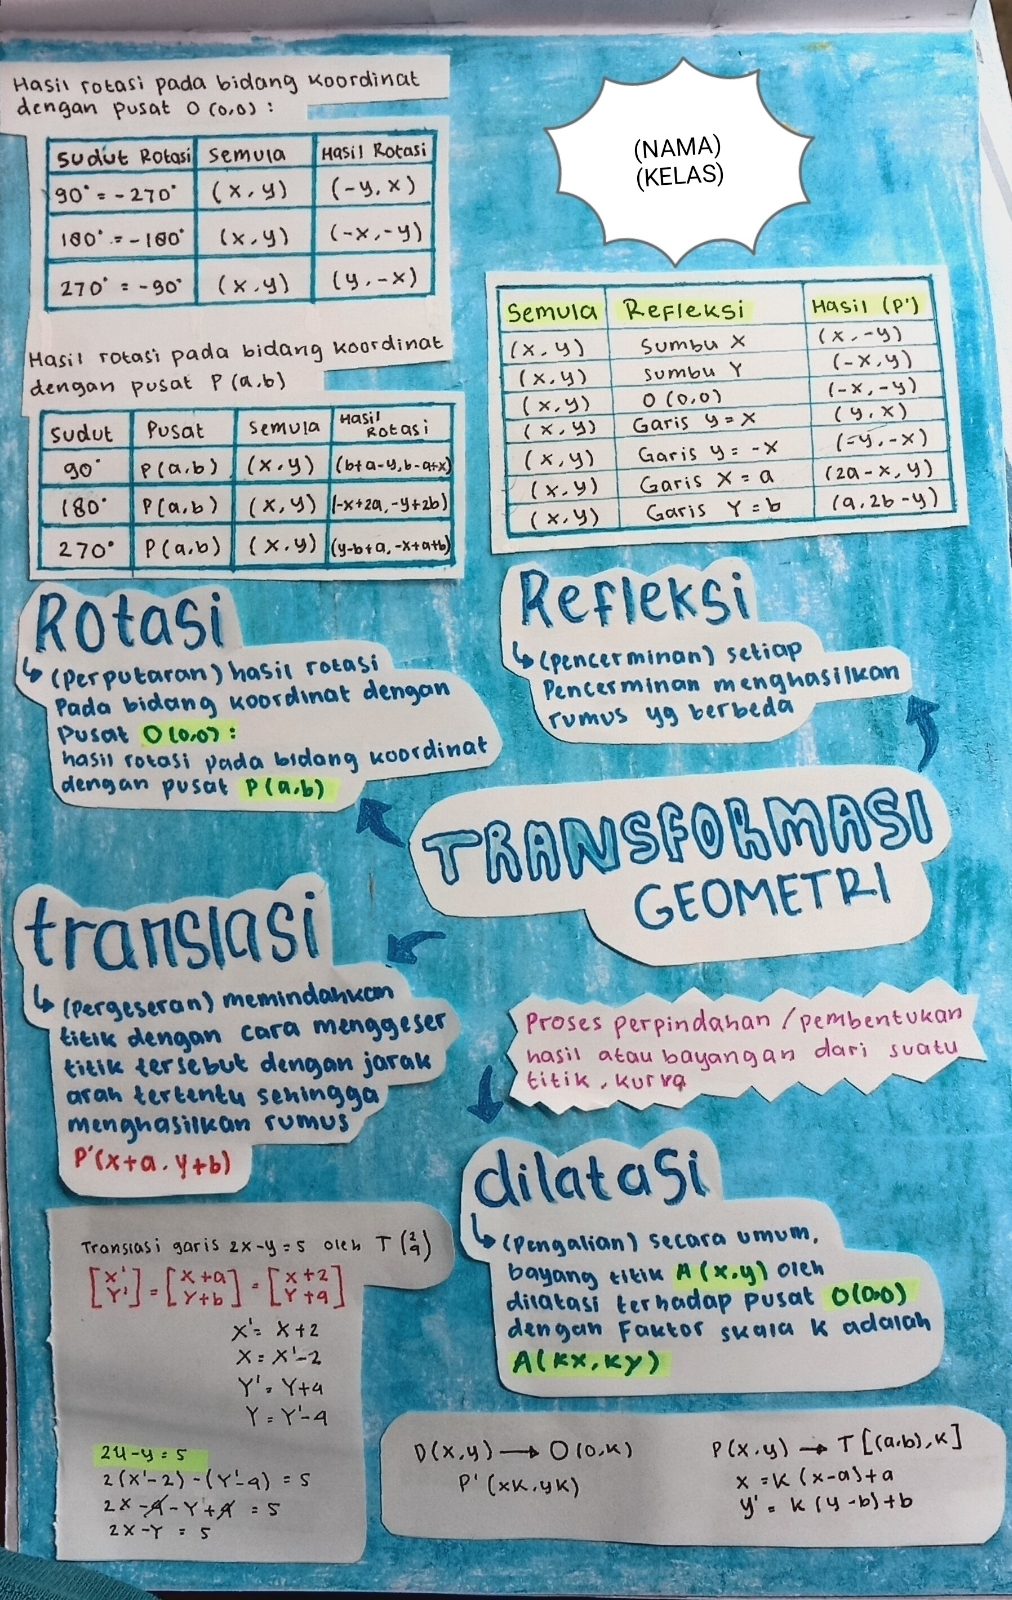 Hasil rotasi pada bidang koordinat
dengan pusat O (0,0) :
Sudut Rotasi | Semula | Hasil Rotasi
90° = -270° | (x,y) | (-y,x)
180° = -180° | (x,y) | (-x,-y)
270° = -90° | (x,y) | (y,-x)
Hasil rotasi pada bidang koordinat
dengan pusat P (a,b)
Sudut | Pusat | Semula | Hasil Rotasi
90° | P(a,b) | (x,y) | (b+a-y,b-a+x)
180° | P(a,b) | (x,y) | (-x+2a,-y+2b)
270° | P(a,b) | (x,y) | (y-b+a,-x+a+b)
(NAMA)
(KELAS)
Semula | Refleksi | Hasil (P')
(x,y) | Sumbu X | (x,-y)
(x,y) | Sumbu Y | (-x,y)
(x,y) | O (0,0) | (-x,-y)
(x,y) | Garis y = x | (y,x)
(x,y) | Garis y = -x | (-y,-x)
(x,y) | Garis X = a | (2a-x,y)
(x,y) | Garis Y = b | (a,2b-y)
Rotasi
↳ (Perputaran) hasil rotasi
Pada bidang koordinat dengan
Pusat O(0,0) :
hasil rotasi pada bidang koordinat
dengan pusat P(a,b)
Refleksi
↳ (pencerminan) setiap
Pencerminan menghasilkan
rumus yg berbeda
TRANSFORMASI
GEOMETRI
translasi
↳ (Pergeseran) memindahkan
titik dengan cara menggeser
titik tersebut dengan jarak
arah tertentu sehingga
menghasilkan rumus
P'(x+a, y+b)
Proses perpindahan /pembentukan
hasil atau bayangan dari suatu
titik, kurva
dilatasi
↳ (Pengalian) secara umum,
bayang titik A (x,y) oleh
dilatasi terhadap pusat O(0,0)
dengan Faktor skala k adalah
A(kx,ky)
Translasi garis 2x-y=5 oleh T (2 4)
[X' Y'] = [X+a Y+b] = [X+2 Y+4]
X' = X+2
X = X'-2
Y' = Y+4
Y = Y'-4
24-y=5
2(X'-2)-(Y'-4) = 5
2X-4-Y+4 = 5
2X-Y = 5
D(x,y) → O (0,k)
P'(xk,yk)
P(x,y) → T[(a,b),k]
x = k (x-a)+a
y' = k (y-b)+b